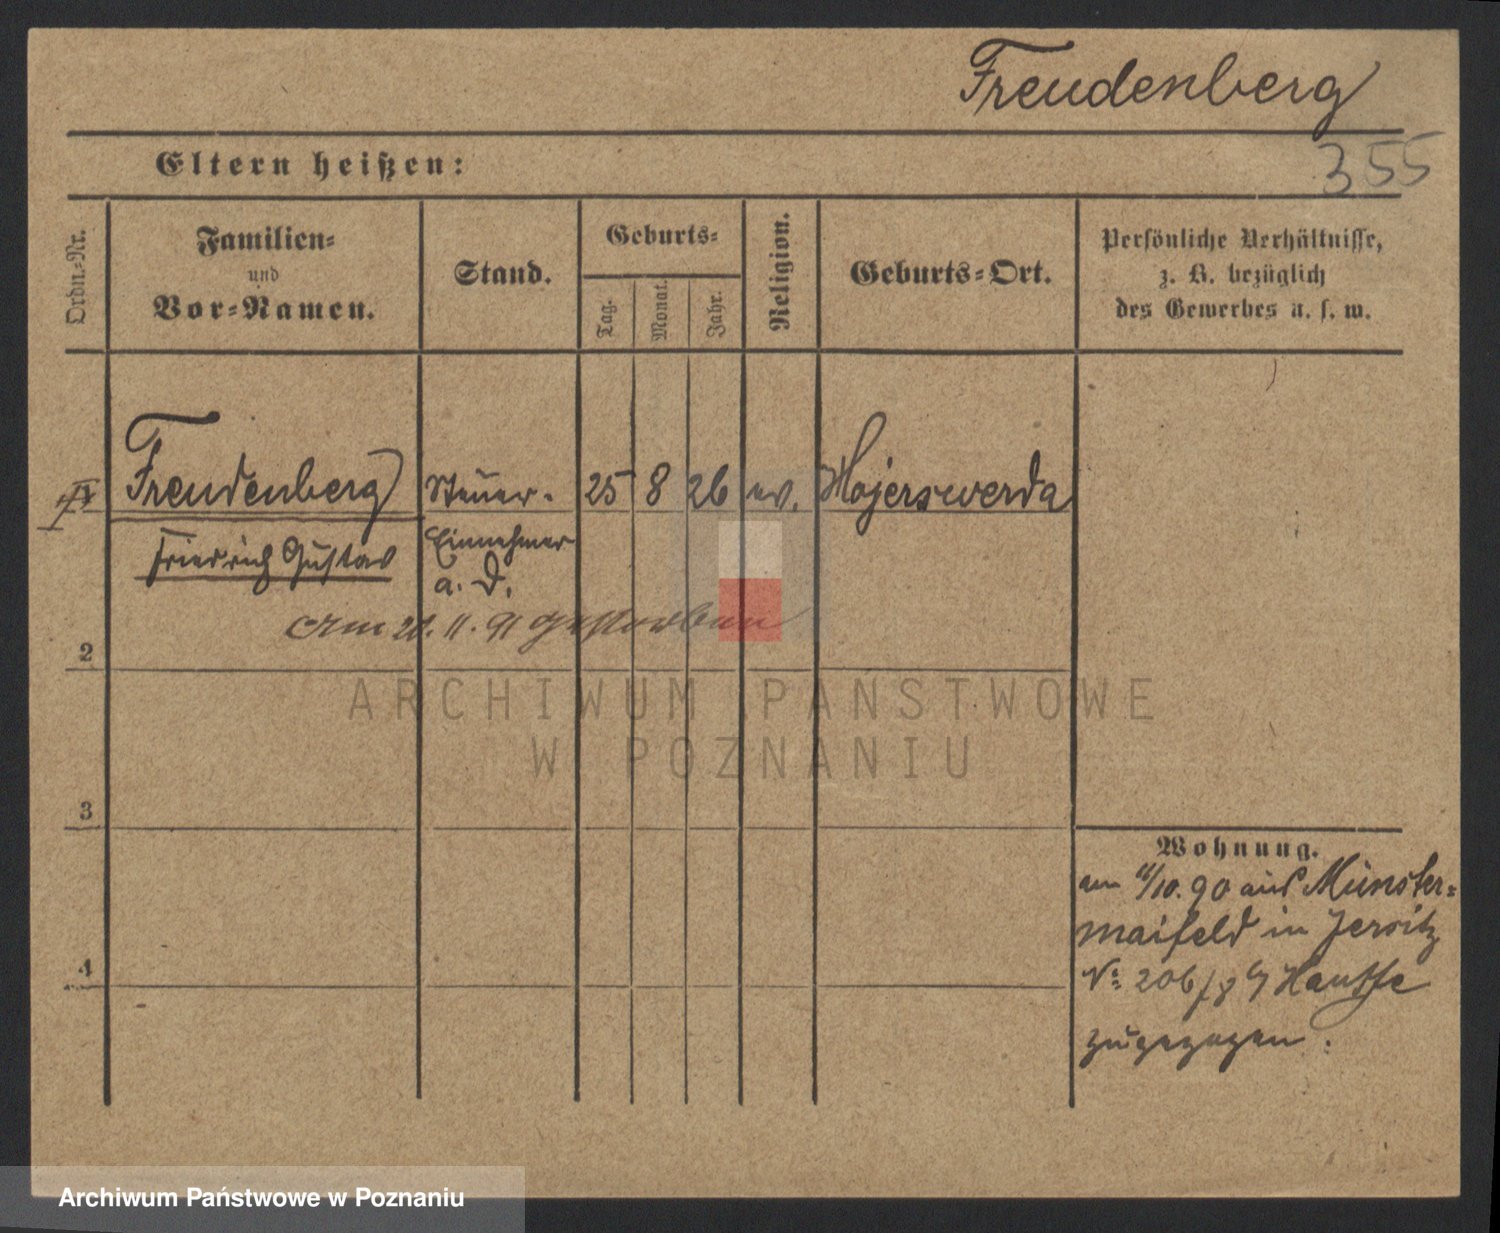 Freudenberg
355
Eltern heißen:
Ordn.-Nr.
Familien-
und
Vor-Namen.
Stand.
Geburts-
Tag.
Monat.
Jahr.
Religion.
Geburts-Ort.
Persönliche Verhältnisse,
z. B. bezüglich
des Gewerbes u. s. w.
Freudenberg Steuer- 25 8 26 ev. Hojerswerda
Friedrich Gustav Einnehmer
a. D.
Am 11. 91 gestorben
2
3
4
Wohnung.
am /10. 90 aus Münster-
maifeld in Jersitz
No 206 / b/ Hautke
zugezogen.
ARCHIWUM PAŃSTWOWE
W POZNANIU
Archiwum Państwowe w Poznaniu